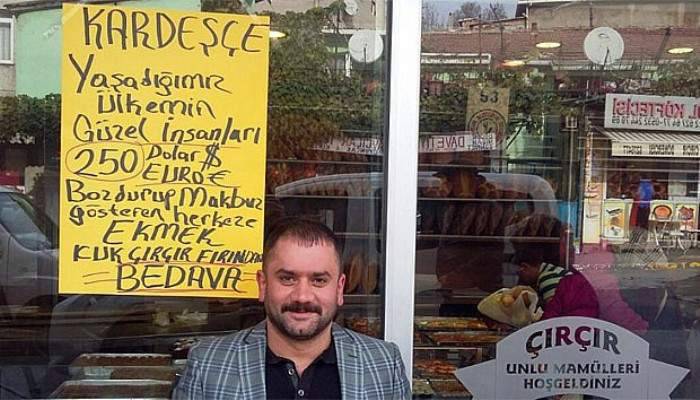 KARDEŞÇE
Yaşadığımız
Ülkemin
Güzel İnsanları
250 Dolar $
EURO €
Bozdurup Makbuz
gösteren herkeze
EKMEK
ÇIRÇIR FIRINDAN
BEDAVA
53
KÖFTECİSİ
ÇIRÇIR
UNLU MAMÜLLERİ
HOŞGELDİNİZ